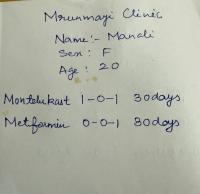 Mrunmayi Clinic
Name:- Manali
Sex: F
Age: 20
Montelukast 1-0-1 30days
Metformin 0-0-1 30days